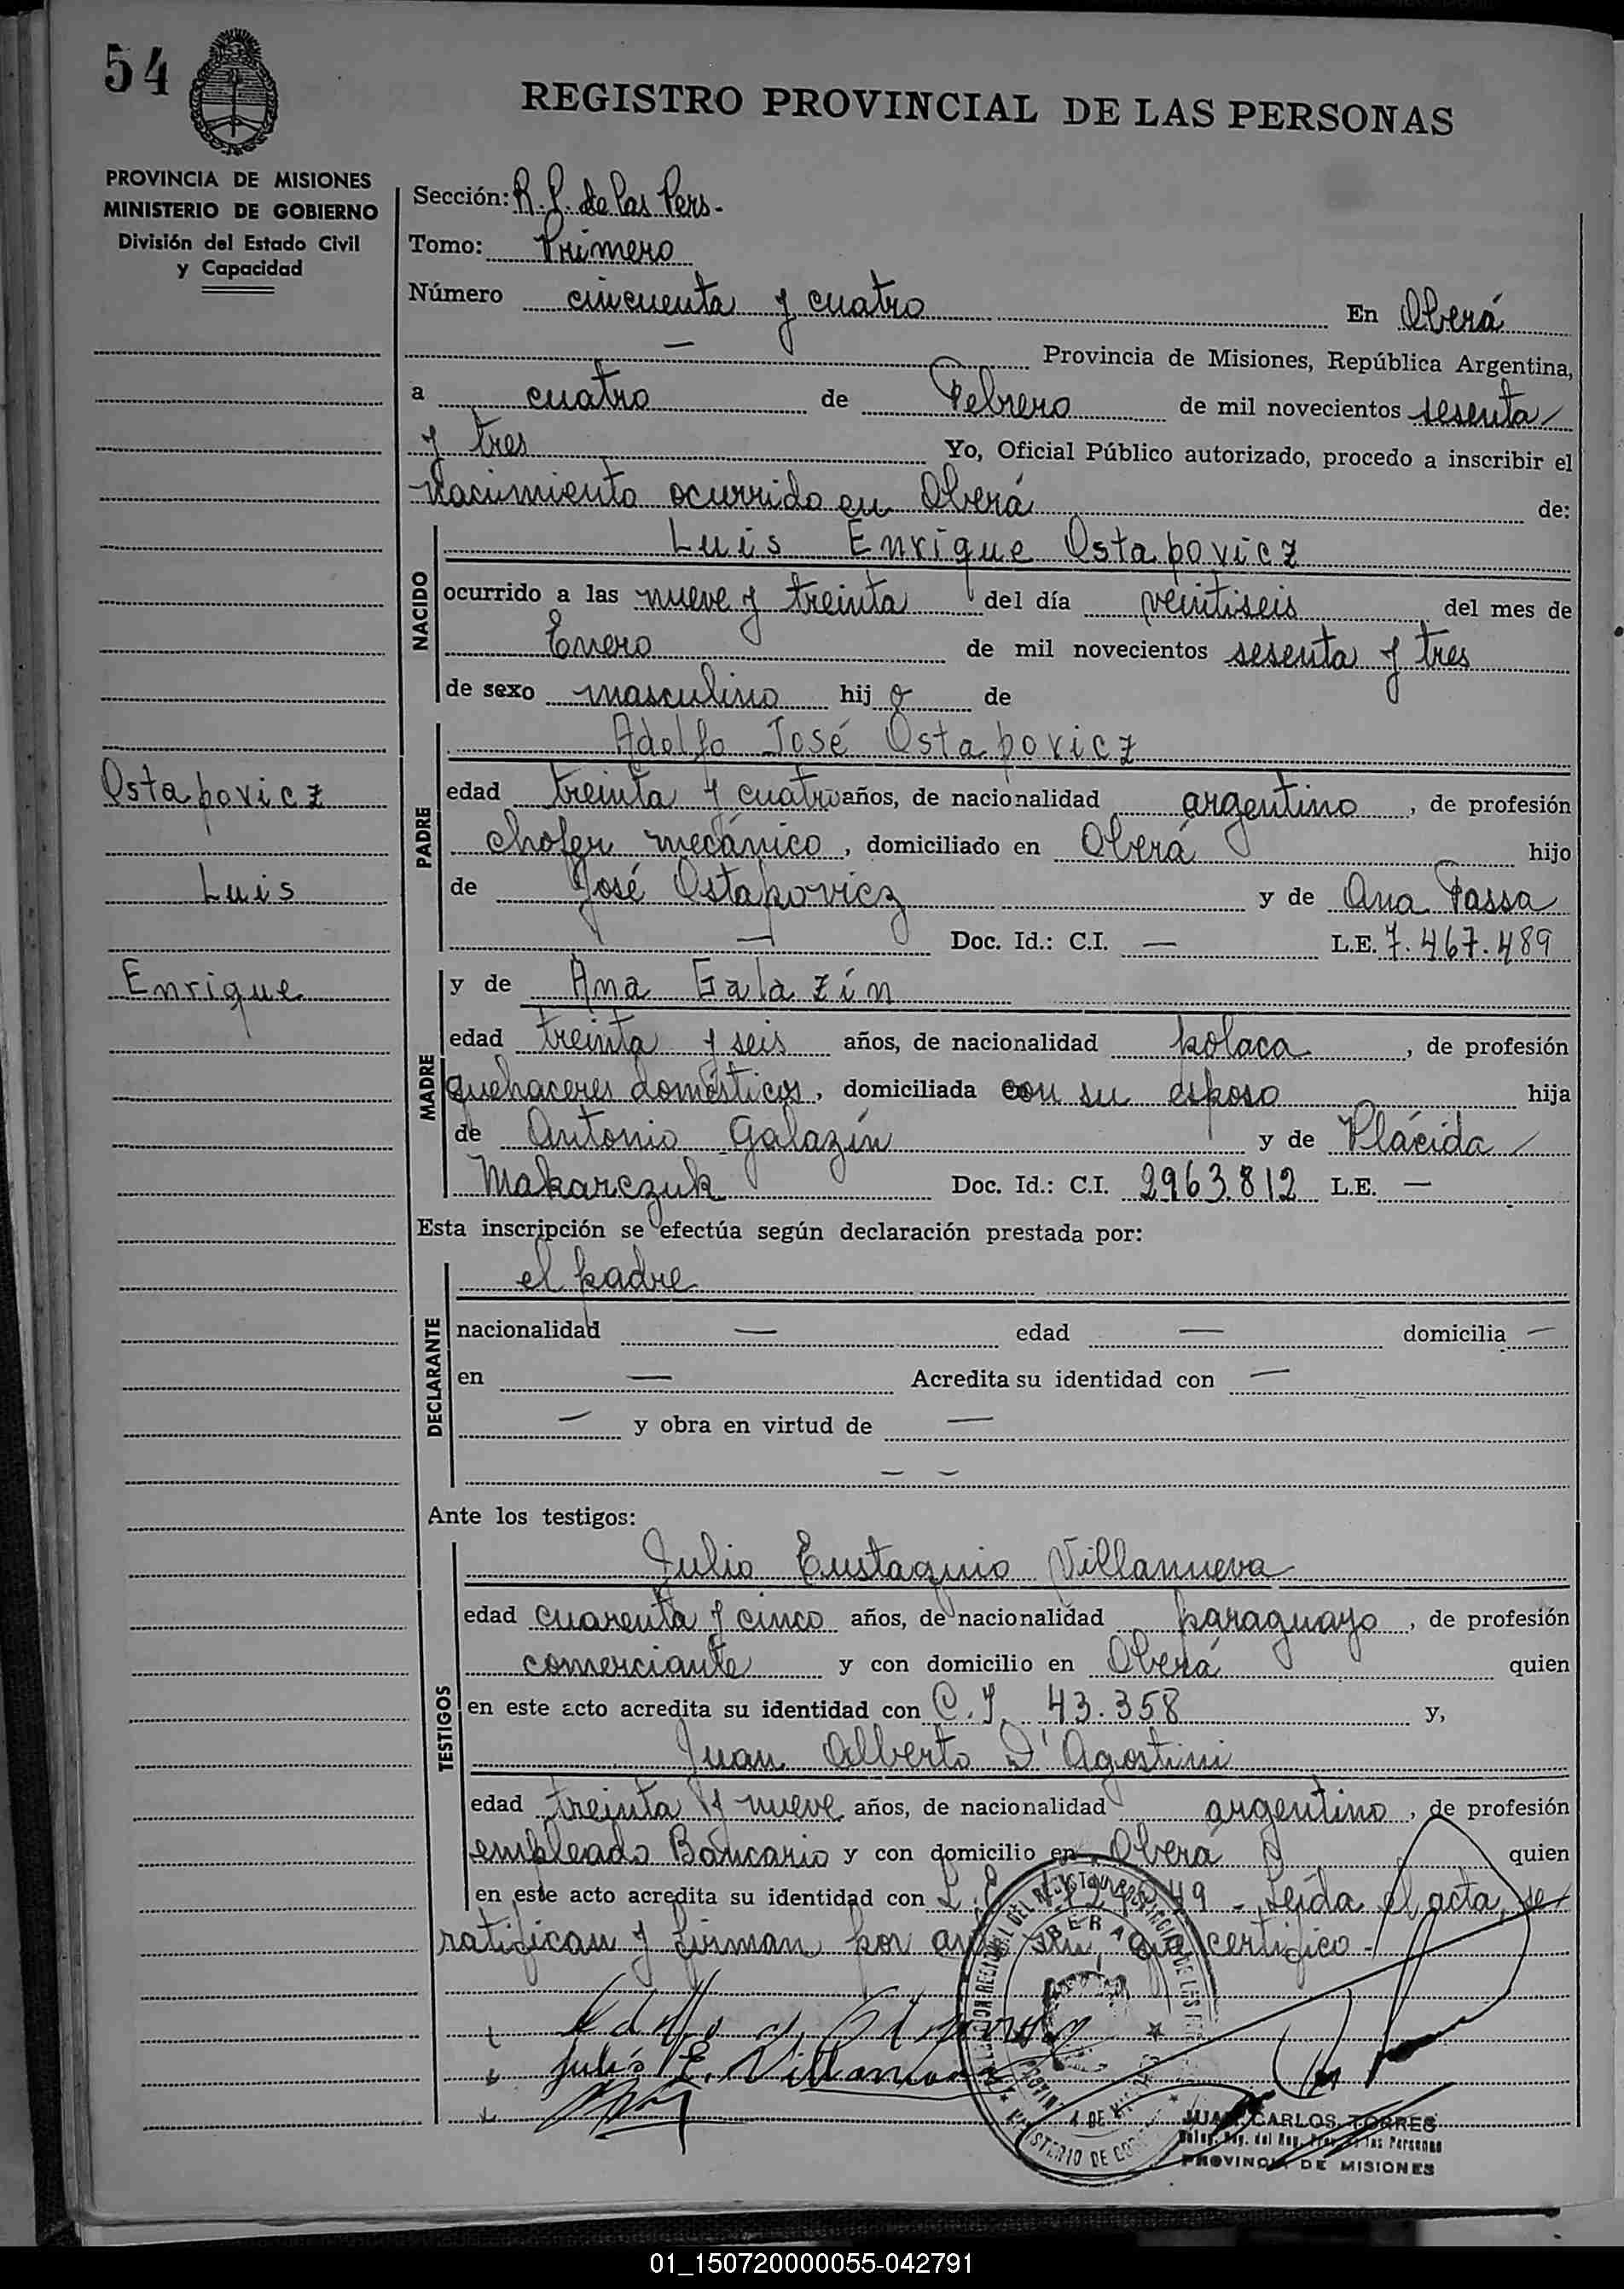 54
REGISTRO PROVINCIAL DE LAS PERSONAS
PROVINCIA DE MISIONES
MINISTERIO DE GOBIERNO
División del Estado Civil
y Capacidad
Sección: R. P. de las Pers.
Tomo: Primero
Número cincuenta y cuatro En Oberá
— Provincia de Misiones, República Argentina,
a cuatro de Febrero de mil novecientos sesenta
y tres Yo, Oficial Público autorizado, procedo a inscribir el
nacimiento ocurrido en Oberá de:
NACIDO
Luis Enrique Ostapovicz
ocurrido a las nueve y treinta del día veintiseis del mes de
Enero de mil novecientos sesenta y tres
de sexo masculino hij o de
PADRE
Adolfo José Ostapovicz
edad treinta y cuatro años, de nacionalidad argentino, de profesión
chofer mecánico, domiciliado en Oberá hijo
de José Ostapovicz y de Ana Passa
— Doc. Id.: C.I. — L.E. 7.467.489
Ostapovicz
Luis
Enrique
MADRE
y de Ana Galazín
edad treinta y seis años, de nacionalidad polaca, de profesión
quehaceres domésticos, domiciliada con su esposo hija
de Antonio Galazín y de Plácida
Makarczuk Doc. Id.: C.I. 2963.812 L.E. —
Esta inscripción se efectúa según declaración prestada por:
DECLARANTE
el padre
nacionalidad — edad — domicilia —
en — Acredita su identidad con —
— y obra en virtud de —
— —
Ante los testigos:
TESTIGOS
Julio Eustaquio Villanueva
edad cuarenta y cinco años, de nacionalidad paraguayo, de profesión
comerciante y con domicilio en Oberá quien
en este acto acredita su identidad con C.I. 43.358 y,
Juan Alberto D'Agostini
edad treinta y nueve años, de nacionalidad argentino, de profesión
empleado Bancario y con domicilio en Oberá quien
en este acto acredita su identidad con L.E. - Leída el acta, se
ratifican y firman por ante mí, que certifico -
Julio E. Villanueva
OBERA
MINISTERIO DE
JUAN CARLOS TORRES
PROVINCIA DE MISIONES
01_150720000055-042791